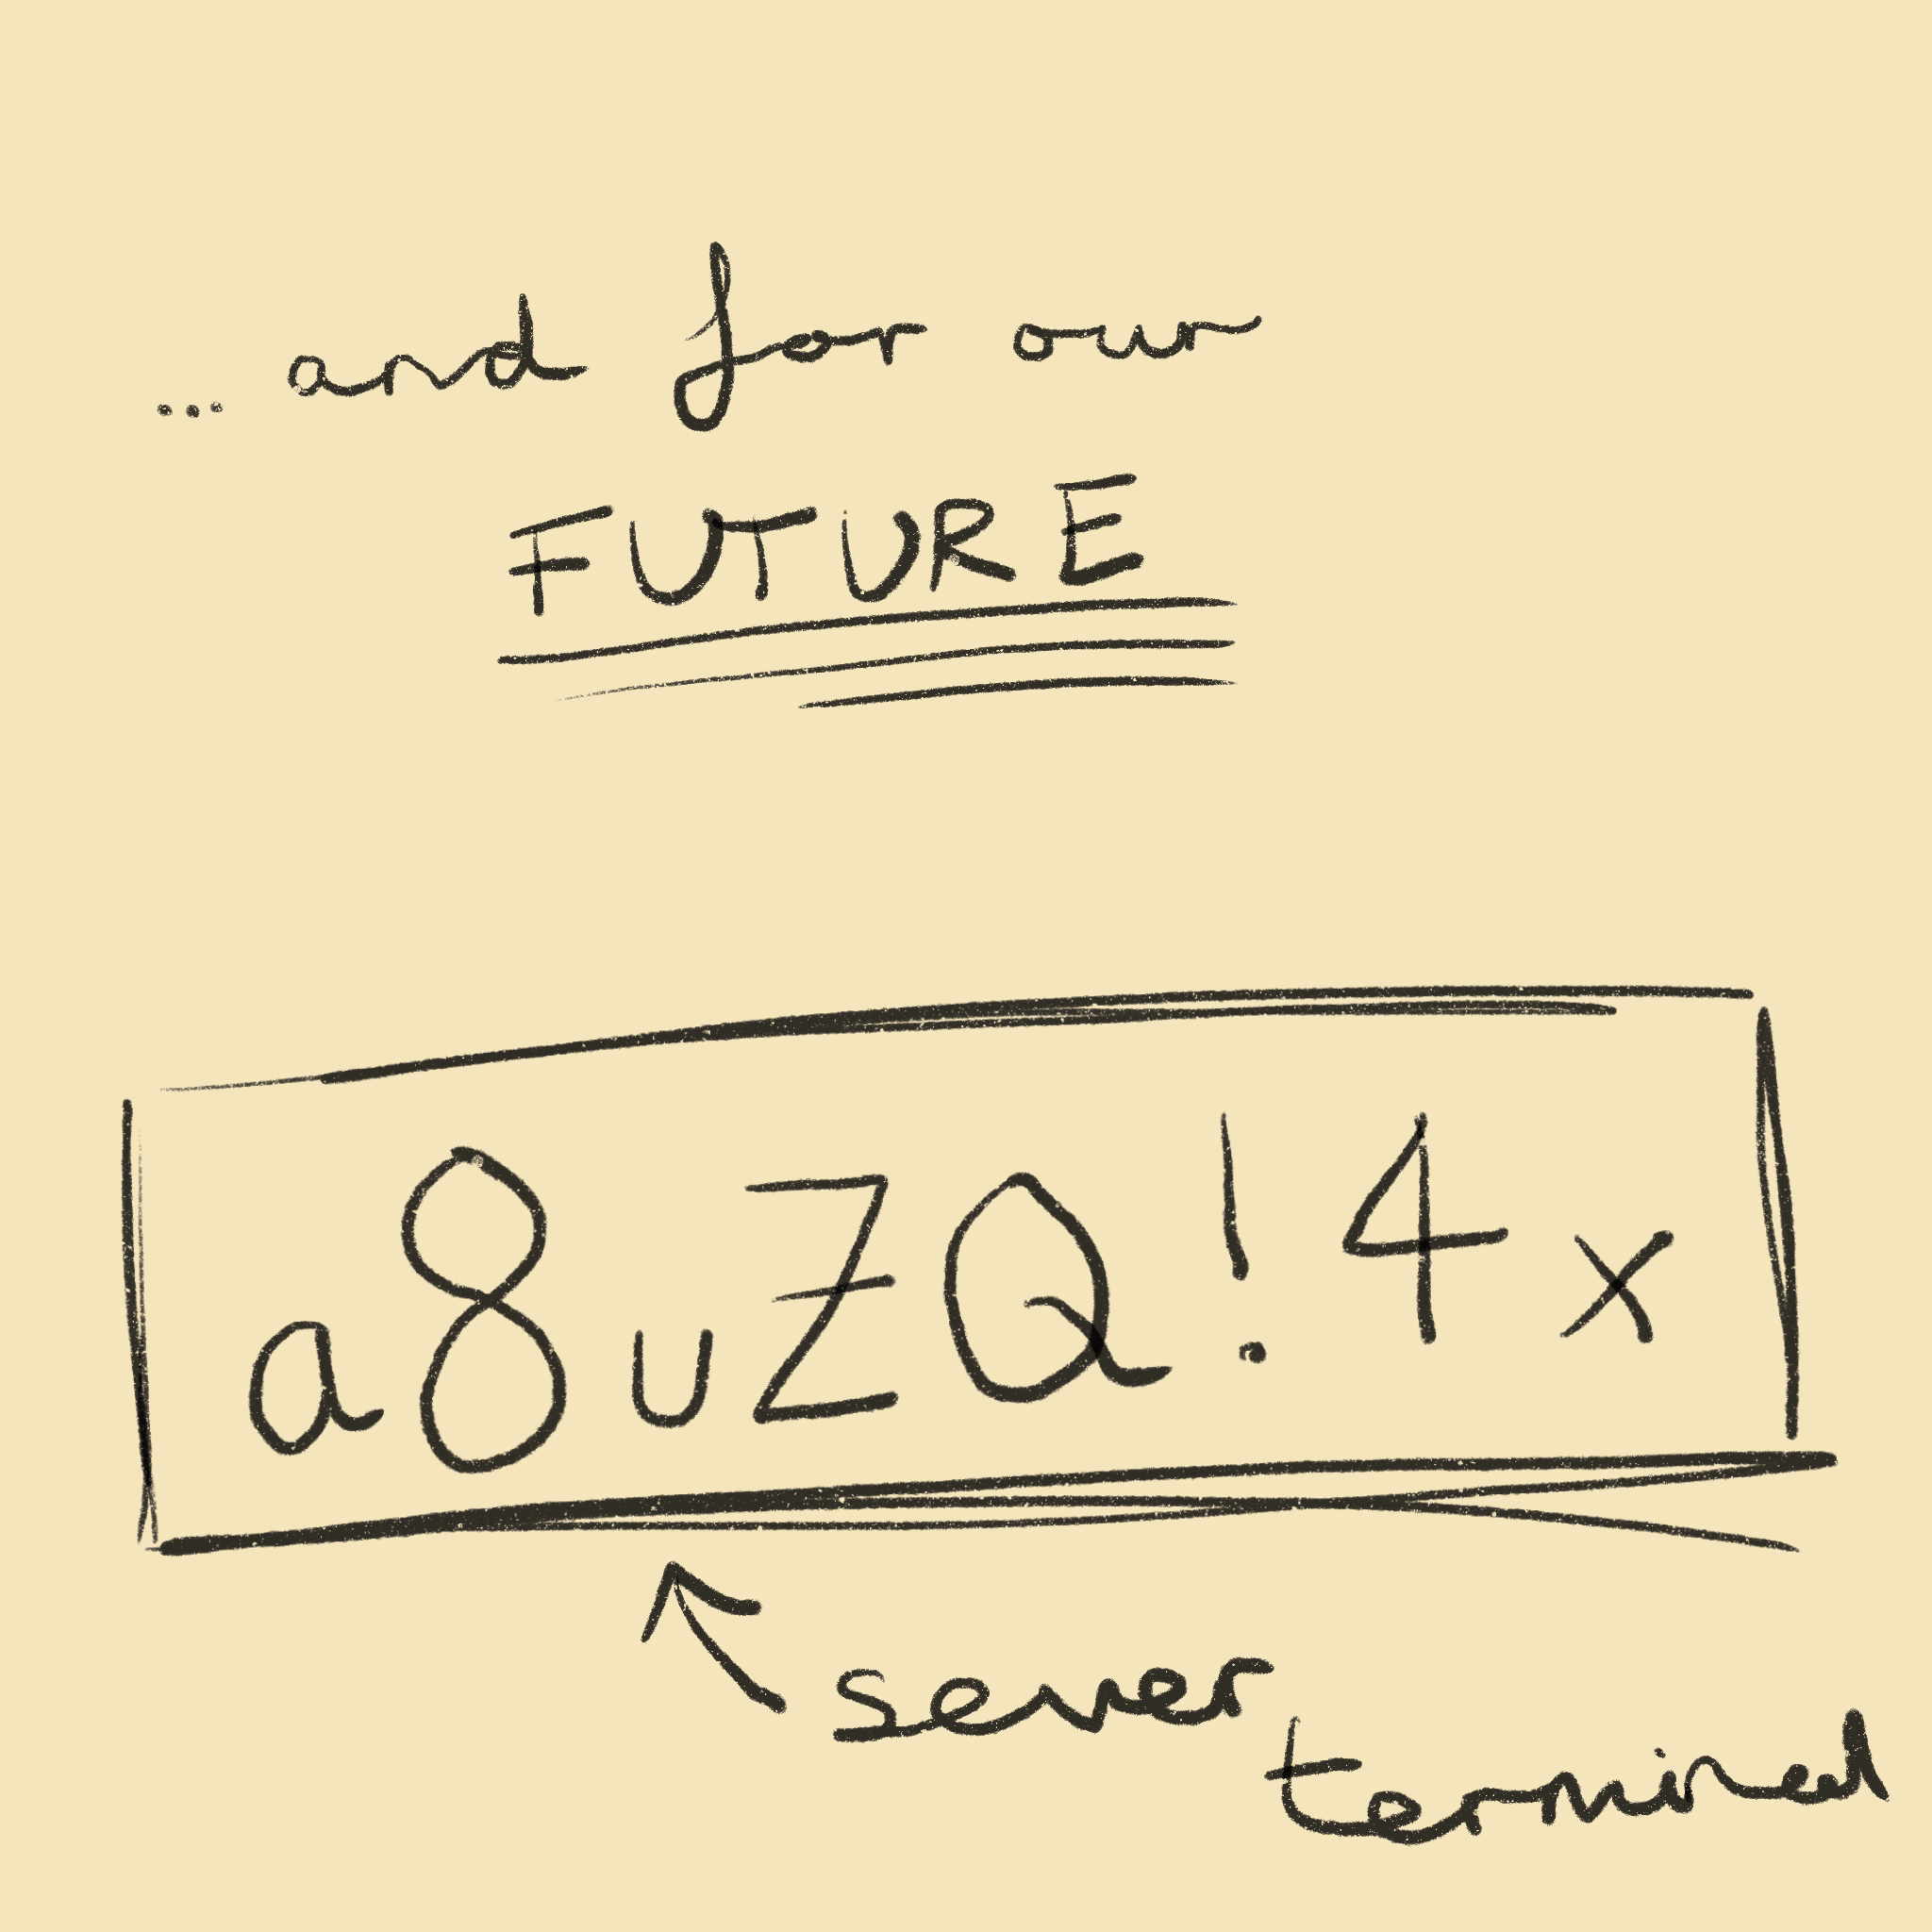 ... and for our
FUTURE
a8uZQ!4x
sever
terminal